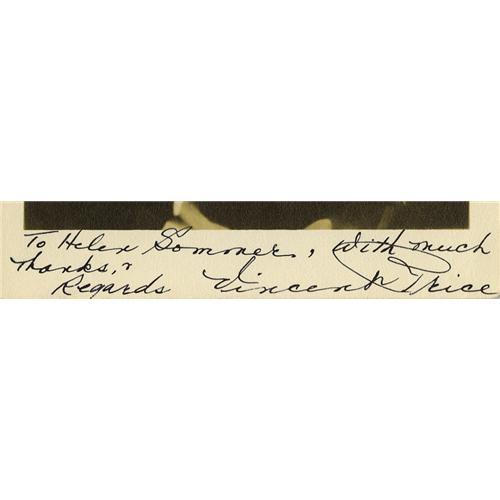 To Helen Sommer, With much
thanks, &
Regards Vincent Price